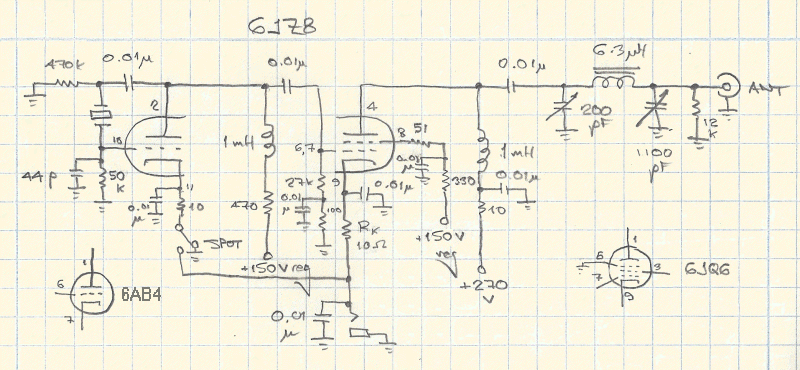 6JZ8
470K
0.01μ
0.01μ
0.01μ
6.3μH
2
4
ANT
200
pF
1100
pF
12
K
18
1mH
6,7
8
51
0.01
μ
1mH
44p
50
K
11
10
0.01
μ
27K
9
0.01μ
330
0.01
μ
10
470
0.01
μ
100
RK
10Ω
SPOT
+150V reg
+150V
reg
+270
V
1
6
7
6AB4
0.01
μ
1
6
7
3
9
6JQ6